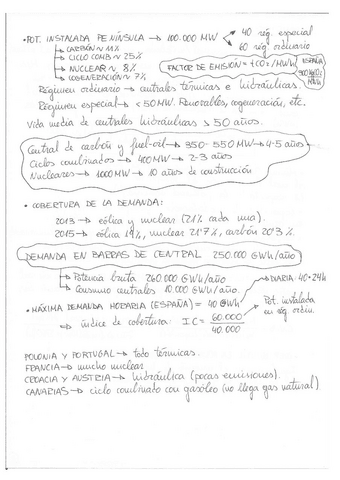 • POT. INSTALADA PENÍNSULA → 100.000 MW → 40 rég. especial
60 rég. ordinario
→ CARBÓN ~ 11%
→ CICLO COMB ~ 25%
→ NUCLEAR ~ 8%
→ COGENERACIÓN ~ 7%
FACTOR DE EMISIÓN = tCO2/MWh
ESPAÑA
Régimen ordinario → centrales térmicas e hidráulicas.
Régimen especial → < 50MW. Renovables, cogeneración, etc.
Vida media de centrales hidráulicas > 50 años.
Central de carbón y fuel-oil → 350-550 MW → 4-5 años
Ciclos combinados → 400MW → 2-3 años
Nucleares → 1000MW → 10 años de construcción
• COBERTURA DE LA DEMANDA:
2013 → eólica y nuclear (21% cada una).
2015 → eólica 19%, nuclear 21'7%, carbón 20'3%.
DEMANDA EN BARRAS DE CENTRAL 250.000 GWh/año
→ Potencia bruta 260.000 GWh/año
→ Consumo centrales 10.000 GWh/año.
→ DIARIA: 40·24h
• MÁXIMA DEMANDA HORARIA (ESPAÑA) = 40 GWh
Pot. instalada
en rég. ordin.
⇒ índice de cobertura: IC = 60.000
40.000
POLONIA Y PORTUGAL → todo térmicas.
FRANCIA → mucho nuclear
CROACIA Y AUSTRIA → hidráulica (pocas emisiones).
CANARIAS → ciclo combinado con gasóleo (no llega gas natural)